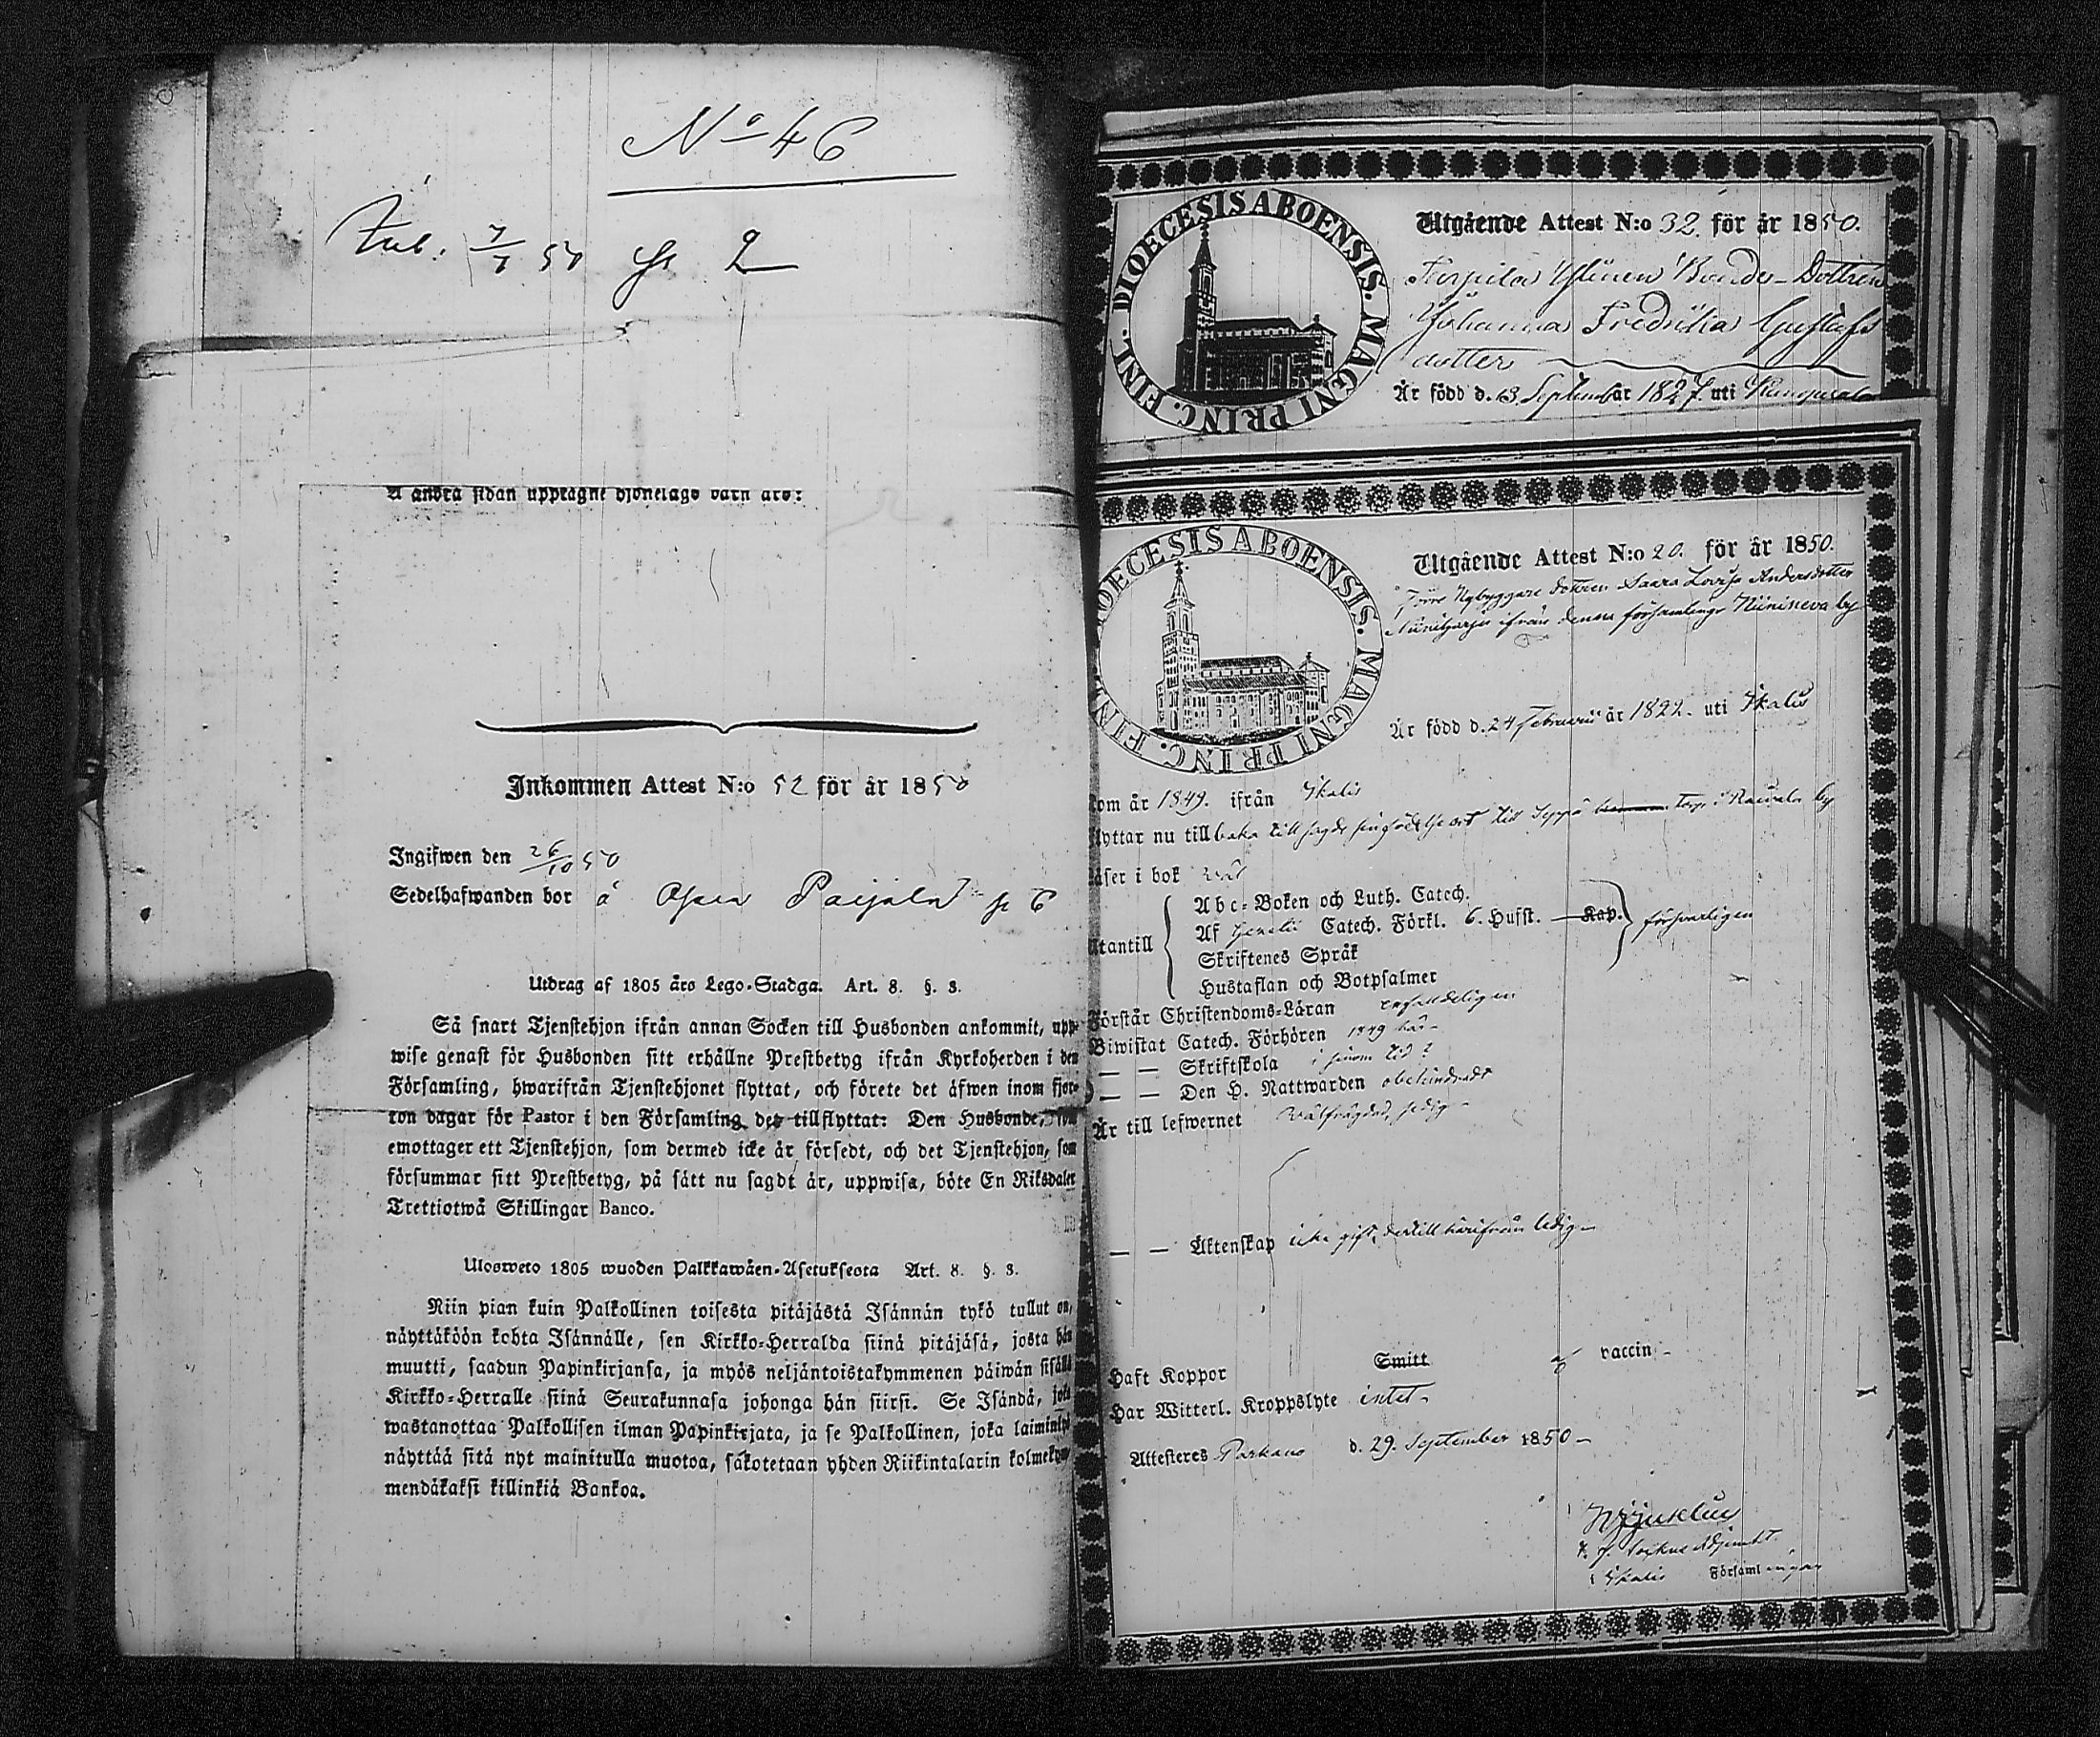 No 46
Inb. 7/1 50 fr 2
Å andra sidan upptagne hjonelags barn äro:
Inkommen Attest N:o 52 för år 1850
Ingifwen den 26/10 50
Sedelhafwanden bor å
Utdrag af 1805 års Lego-Stadga. Art. 8. §. 3.
Så snart Tjenstehjon ifrån annan Socken till Husbonden ankommit, upp-
wise genast för Husbonden sitt erhållne Prestbetyg ifrån Kyrkoherden i den
Församling, hwarifrån Tjenstehjonet flyttat, och förete det äfwen inom fjor-
ton dagar för Pastor i den Församling det tillflyttat: Den Husbonde, som
emottager ett Tjenstehjon, som dermed icke är försedt, och det Tjenstehjon, som
försummar sitt Prestbetyg, på sätt nu sagdt är, uppwisa, böte En Riksdaler
Trettiotwå Skillingar Banco.
Ulosweto 1805 wuoden Palkkawäen-Asetuksesta Art. 8. §. 3.
Niin pian kuin Palkollinen toisesta pitäjästä Isännän tykö tullut on,
näyttäköön kohta Isännälle, sen Kirkko-Herralda siinä pitäjäsä, josta hän
muutti, saadun Papinkirjansa, ja myös neljäntoistakymmenen päiwän sisällä
Kirkko-Herralle siinä Seurakunnasa johonga hän siirsi. Se Isändä, joka
wastanottaa Palkollisen ilman Papinkirjata, ja se Palkollinen, joka laiminlyö
näyttää sitä nyt mainitulla muotoa, sakotetaan yhden Riikintalarin kolmekym-
mendäkaksi killinkiä Bankoa.
DIOECESIS ABOENSIS. MAGNI PRINC. FINL.
Utgående Attest N:o 32. för år 1850.
Bonde-Dottren
Johanna Fredrika Gustafs
dotter
Är född d. 13 September 1827. uti Kangasala
DIOECESIS ABOENSIS. MAGNI PRINC. FIN
Utgående Attest N:o 20. för år 1850.
Nybyggare dottren Saara Lovisa Andersdotter
ifrån denna församlings Niinineva by
Är född d. 24 Februarii år 1822. uti Ikalis
kom år 1849. ifrån Ikalis
flyttar nu tillbaka till sagde sin födelse ort till Seppä torp i by
läser i bok väl
Abc-Boken och Luth. Catech.
Utantill Af Catech. Förkl. 6. Hufst. Kap. försvarligen
Skriftenes Språk
Hustaflan och Botpsalmer
Förstår Christendoms-Läran enfaldeligen
Biwistat Catech. Förhören 1849 här
— — Skriftskola i sinom tid?
— — Den H. Nattwarden obehindradt
Är till lefwernet wälfrägdad, sedig
— — Äktenskap icke gift, dertill härifrån ledig
Haft Koppor Smitt vaccin
Har Witterl. Kroppslyte intet.
Attesteres Parkano d. 29. September 1850
Adjunkt
i Ikalis Församlingar